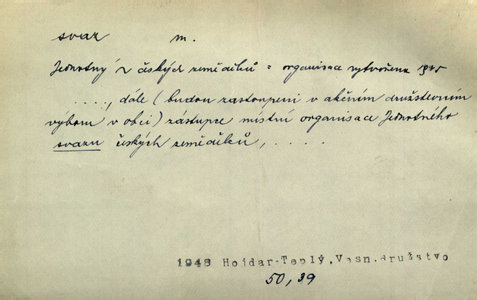 svaz m.
Jednotný s českých zemědělců = organisace vytvořena 1945
...., dále (budou zastoupeni v akčním družstevním
výboru v obci) zástupce místní organisace Jednotného
svazu českých zemědělců, ....
1948 Hojdar-Teplý, Vesn. družstvo
50, 39